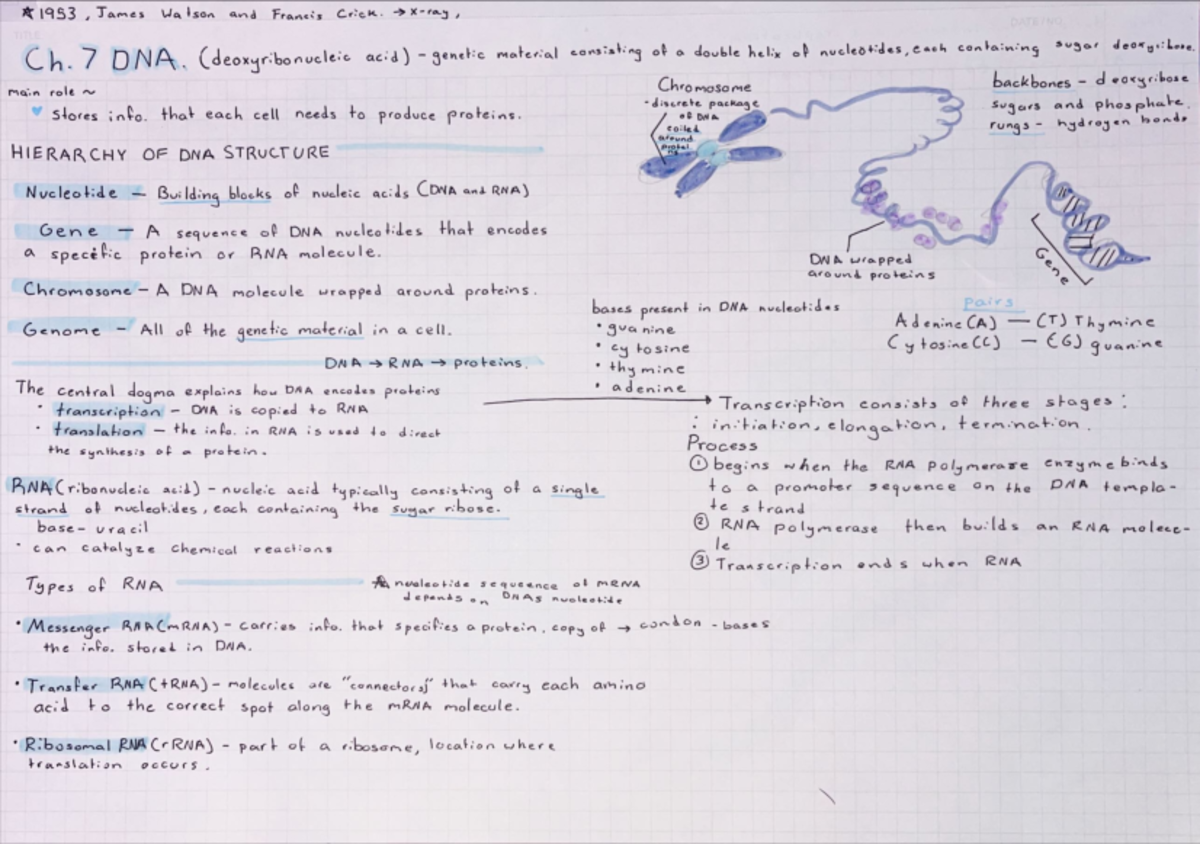 ★ 1953, James Watson and Francis Crick. → x-ray,
Ch. 7 DNA. (deoxyribonucleic acid) - genetic material consisting of a double helix of nucleotides, each containing sugar deoxyribose.
main role ~
♥ stores info. that each cell needs to produce proteins.
HIERARCHY OF DNA STRUCTURE
Nucleotide — Building blocks of nucleic acids (DNA and RNA)
Gene — A sequence of DNA nucleotides that encodes
a specific protein or RNA molecule.
Chromosome - A DNA molecule wrapped around proteins.
Genome - All of the genetic material in a cell.
DNA → RNA → proteins.
The central dogma explains how DNA encodes proteins
• transcription - DNA is copied to RNA
• translation - the info. in RNA is used to direct
the synthesis of a protein.
RNA (ribonucleic acid) - nucleic acid typically consisting of a single
strand of nucleotides, each containing the sugar ribose.
base - uracil
• can catalyze chemical reactions
Types of RNA
★ nucleotide sequence of mRNA
depends on DNAs nucleotide
• Messenger RNA (mRNA) - carries info. that specifies a protein. copy of → condon - bases
the info. stored in DNA.
• Transfer RNA (tRNA) - molecules are "connectors" that carry each amino
acid to the correct spot along the mRNA molecule.
• Ribosomal RNA (rRNA) - part of a ribosome, location where
translation occurs.
Chromosome
- discrete package
of DNA
coiled
around
backbones - deoxyribose
sugars and phosphate.
rungs - hydrogen bonds
DNA wrapped
around proteins
Gene
bases present in DNA nucleotides
• guanine
• cytosine
• thymine
• adenine
pairs
Adenine (A) — (T) Thymine
Cytosine (C) — (G) guanine
Transcription consists of three stages:
: initiation, elongation, termination.
Process
① begins when the RNA polymerase enzyme binds
to a promoter sequence on the DNA templa-
te strand
② RNA polymerase then builds an RNA molecu-
le
③ Transcription ends when RNA